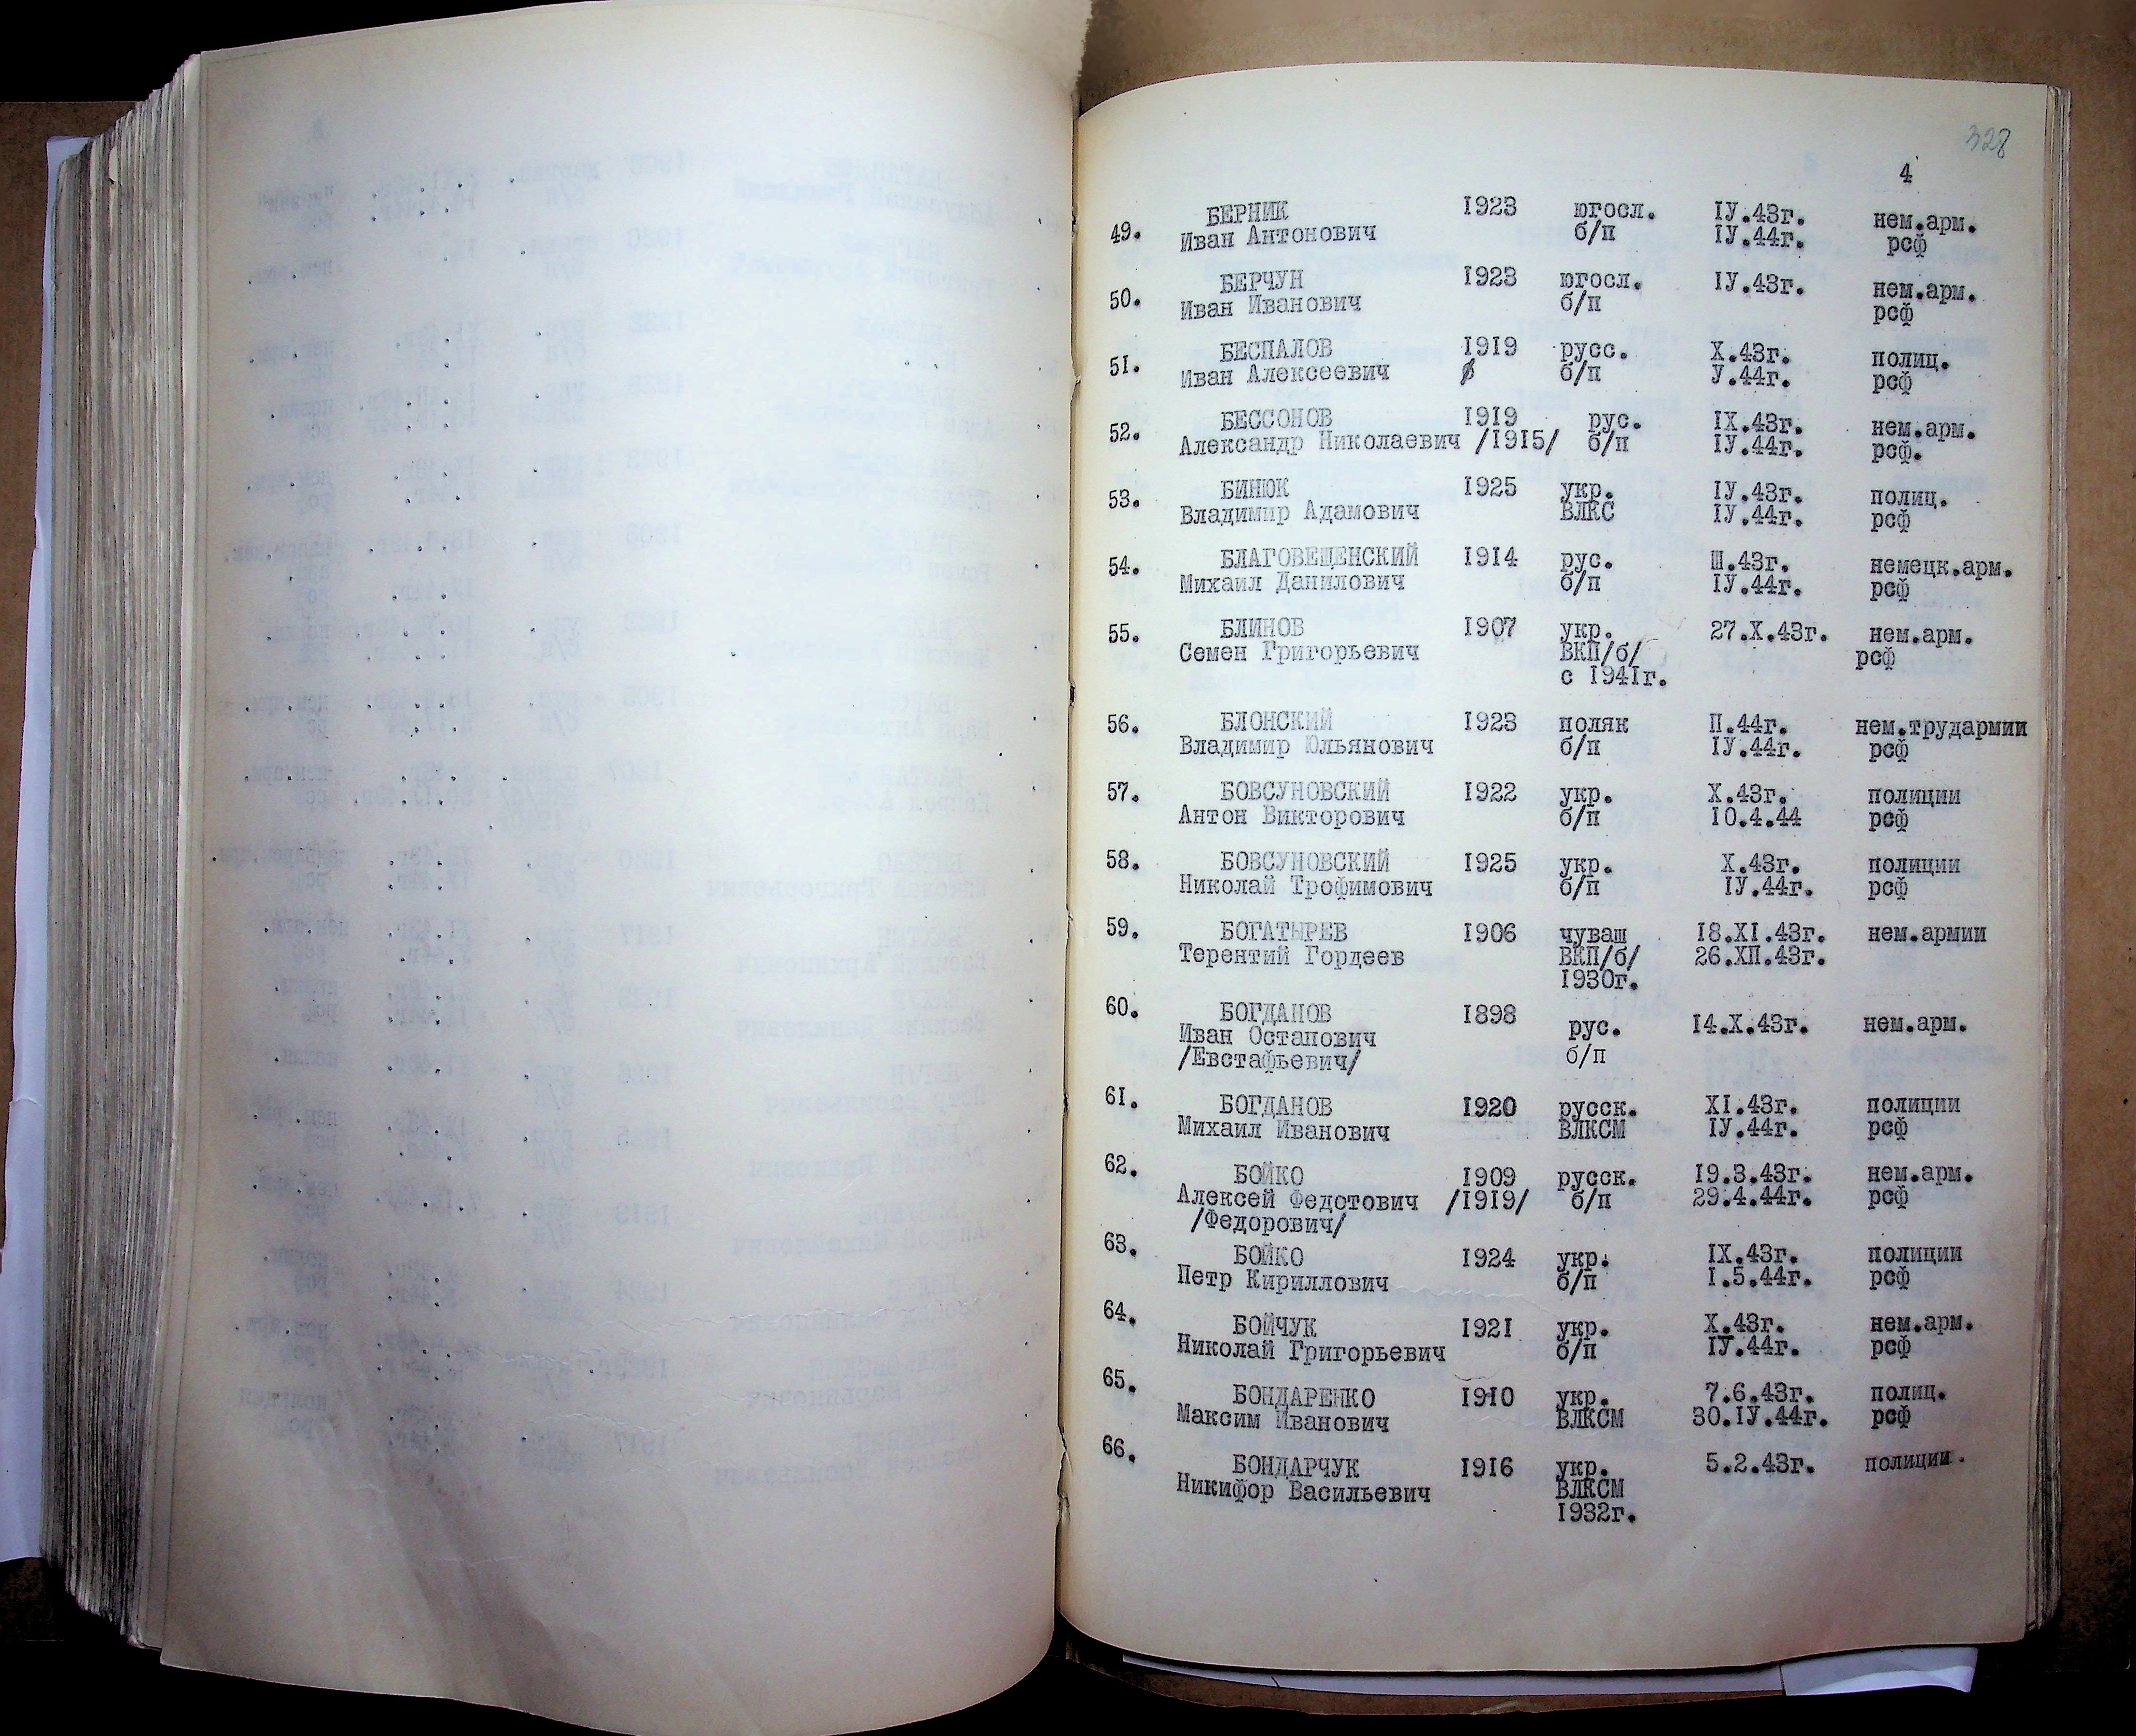 328
4
49. БЕРНИК 1923 югосл. IУ.43г. нем.арм.
Иван Антонович б/п IУ.44г. рсф
50. БЕРЧУН 1923 югосл. IУ.43г. нем.арм.
Иван Иванович б/п рсф
51. БЕСПАЛОВ 1919 русс. Х.43г. полиц.
Иван Алексеевич б/п У.44г. рсф
52. БЕССОНОВ 1919 рус. IХ.43г. нем.арм.
Александр Николаевич /1915/ б/п IУ.44г. рсф.
53. БИНЮК 1925 укр. IУ.43г. полиц.
Владимир Адамович ВЛКС IУ.44г. рсф
54. БЛАГОВЕЩЕНСКИЙ 1914 рус. Ш.43г. немецк.арм.
Михаил Данилович б/п IУ.44г. рсф
55. БЛИНОВ 1907 укр. 27.Х.43г. нем.арм.
Семен Григорьевич ВКП/б/ рсф
с 1941г.
56. БЛОНСКИЙ 1923 поляк П.44г. нем.трудармии
Владимир Юльянович б/п IУ.44г. рсф
57. БОВСУНОВСКИЙ 1922 укр. Х.43г. полиции
Антон Викторович б/п 10.4.44 рсф
58. БОВСУНОВСКИЙ 1925 укр. Х.43г. полиции
Николай Трофимович б/п IУ.44г. рсф
59. БОГАТЫРЕВ 1906 чуваш 18.XI.43г. нем.армии
Терентий Гордеев ВКП/б/ 26.ХП.43г.
1930г.
60. БОГДАНОВ 1898 рус. 14.Х.43г. нем.арм.
Иван Остапович б/п
/Евстафьевич/
61. БОГДАНОВ 1920 русск. XI.43г. полиции
Михаил Иванович ВЛКСМ IУ.44г. рсф
62. БОЙКО 1909 русск. 19.3.43г. нем.арм.
Алексей Федотович /1919/ б/п 29.4.44г. рсф
/Федорович/
63. БОЙКО 1924 укр. IХ.43г. полиции
Петр Кириллович б/п 1.5.44г. рсф
64. БОЙЧУК 1921 укр. Х.43г. нем.арм.
Николай Григорьевич б/п IУ.44г. рсф
65. БОНДАРЕНКО 1910 укр. 7.6.43г. полиц.
Максим Иванович ВЛКСМ 30.IУ.44г. рсф
66. БОНДАРЧУК 1916 укр. 5.2.43г. полиции.
Никифор Васильевич ВЛКСМ
1932г.